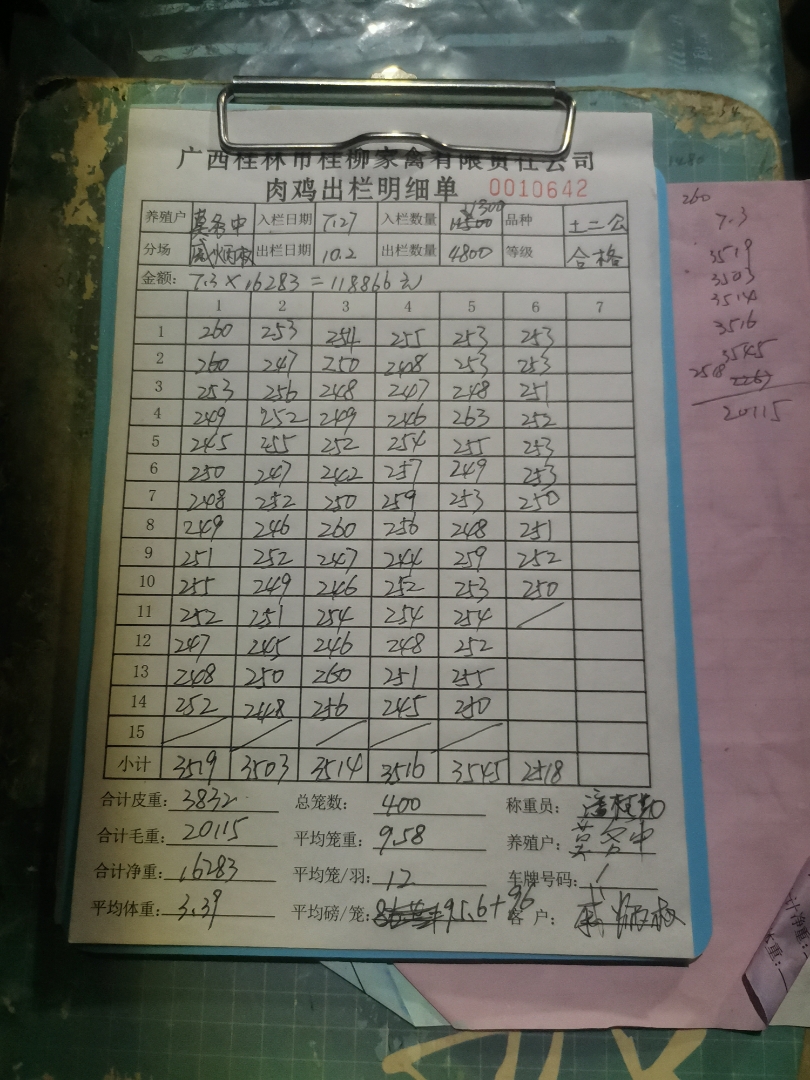 广西桂林市桂柳家禽有限责任公司
肉鸡出栏明细单 0010642
养殖户 莫务中 入栏日期 7.27 入栏数量 11300 品种 土二公
分场 出栏日期 10.2 出栏数量 4800 等级 合格
金额: 7.3 × 16283 = 118866元
1 2 3 4 5 6 7
1 260 253 254 255 253 253
2 260 247 250 248 253 253
3 253 256 248 247 248 251
4 249 252 249 246 263 252
5 245 255 252 254 255 253
6 250 247 242 257 249 253
7 248 252 250 259 253 250
8 249 246 260 256 248 251
9 251 252 247 244 259 252
10 255 249 246 252 253 250
11 252 251 254 254 254
12 247 245 246 248 252
13 248 250 260 251 255
14 252 248 256 245 250
15
小计 3519 3503 3514 3516 3545 2518
合计皮重: 3832 总笼数: 400 称重员:
合计毛重: 20115 平均笼重: 9.58 养殖户: 莫务中
合计净重: 16283 平均笼/羽: 12 车牌号码:
平均体重: 3.39 平均磅/笼: 95.6+96 客户:
260
7.3
3519
3503
3514
3516
3545
2518
20115